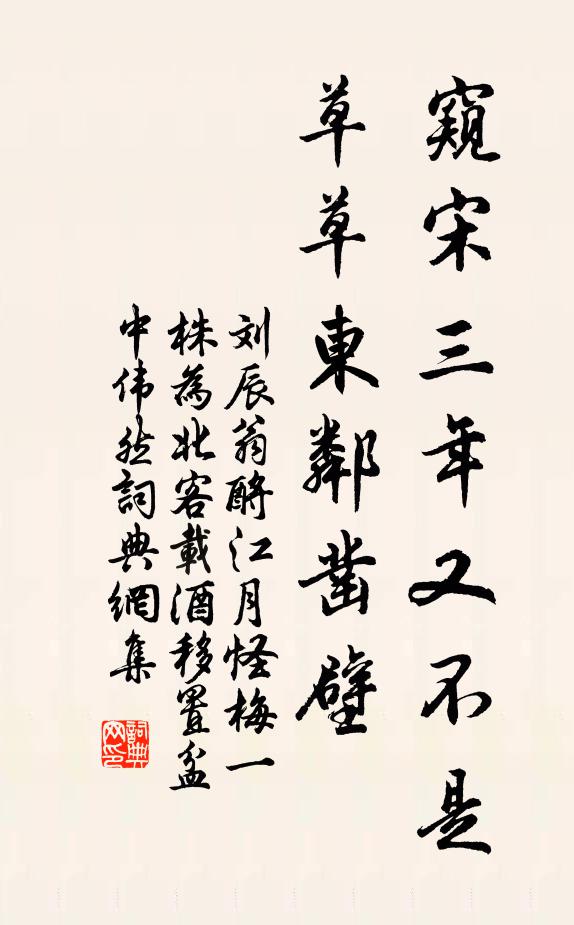 窺宋三年又不是
草草東鄰凿壁
刘辰翁酹江月怪梅一
株為北客載酒移置盆
中伟然詞典網集
詞典
网印